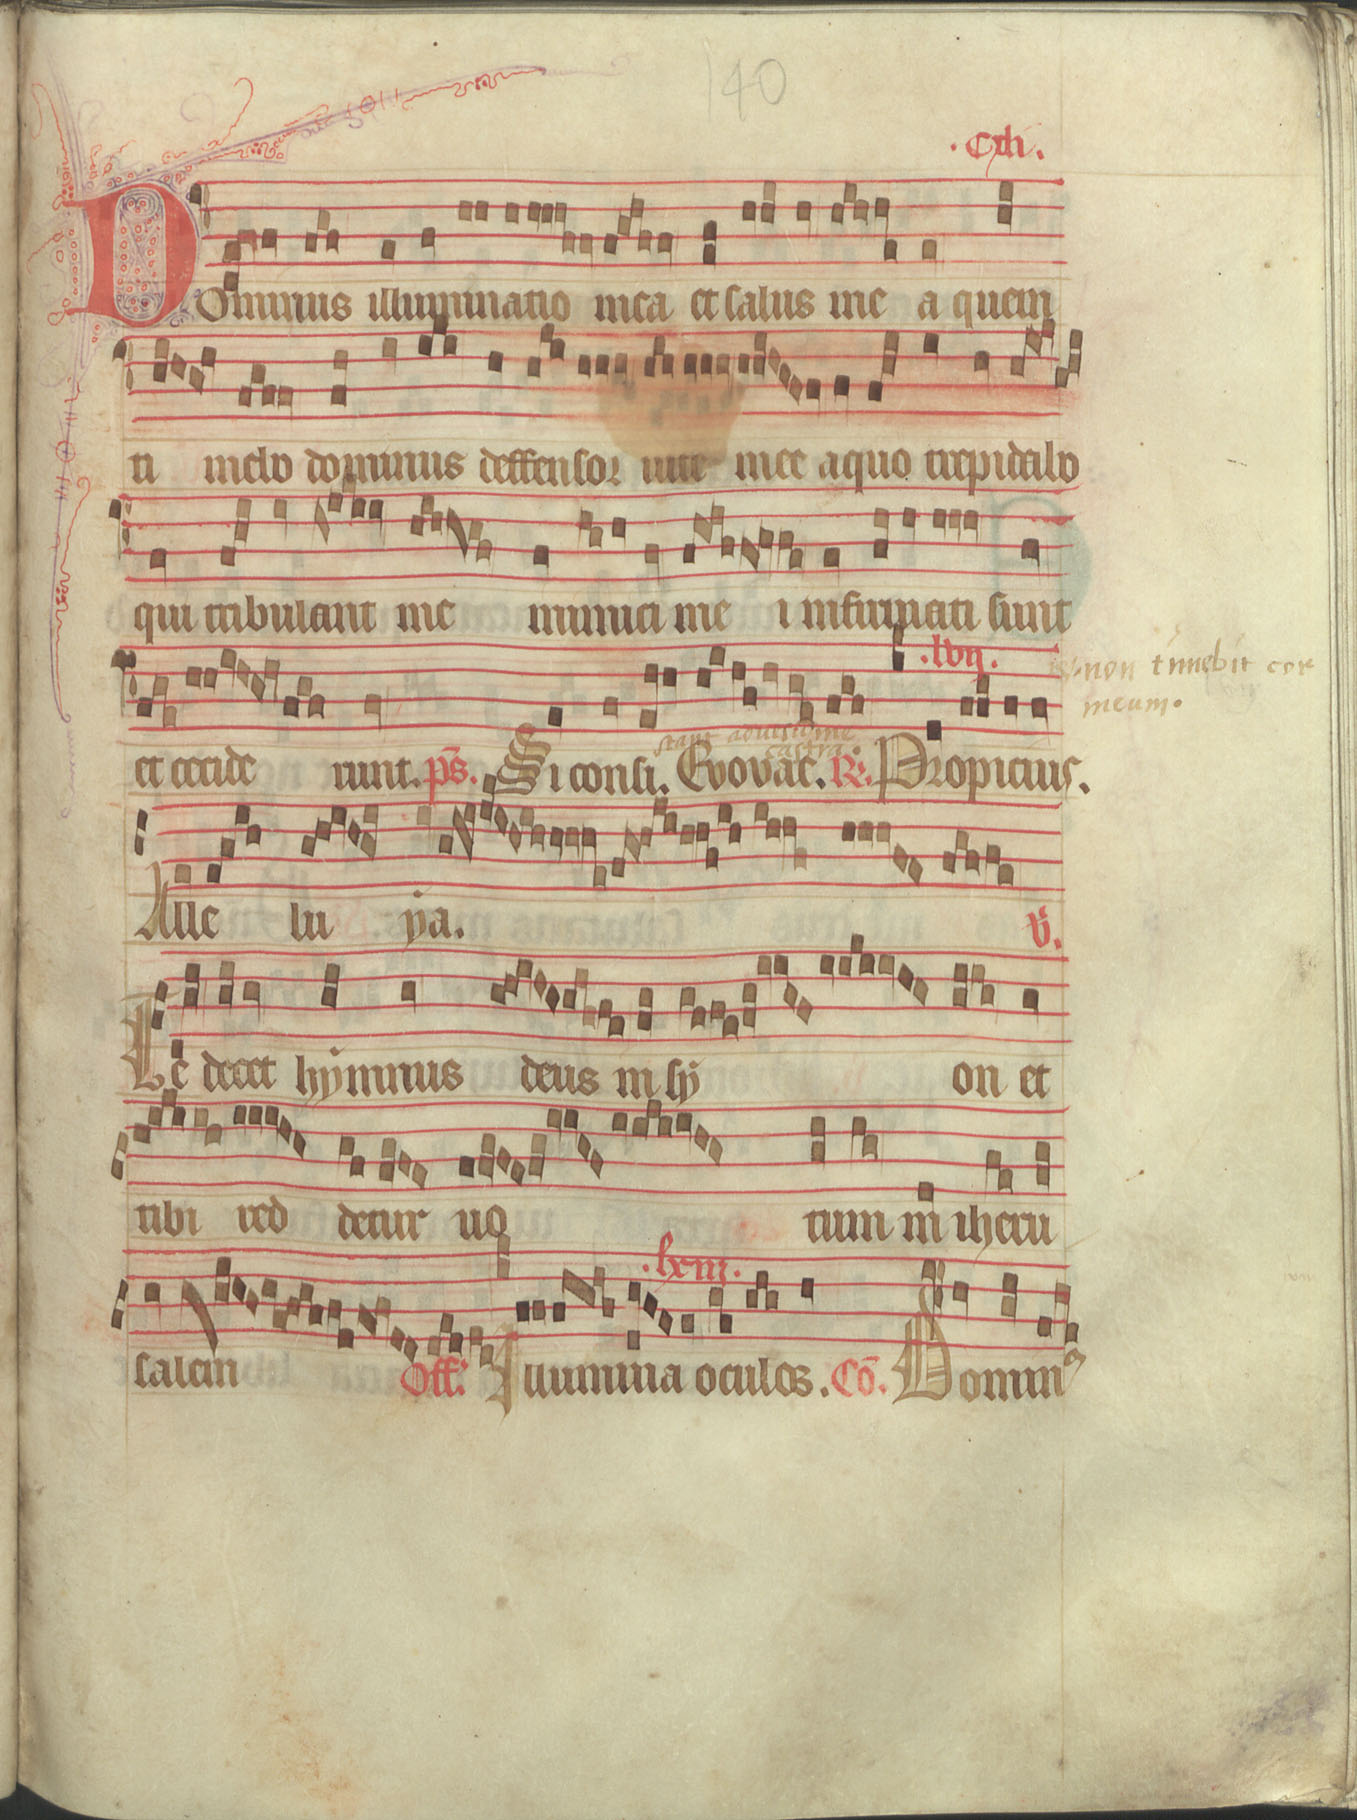 140
Dominus illuminatio mea et salus me a quem
ti mebo dominus deffensor vite mee a quo trepidabo
qui tribulant me inimici me i infirmati sunt
.lvij.
non timebit cor
meum.
stant adversu me
castra.
et cecide runt. ps. Si consi. Evovae. R. Propicius.
Alle lu ya. V.
Te decet hymnus deus in sy on et
tibi red detur vo tum in iheru
.lxiii.
salem Off. Illumina oculos. Co. Domin9